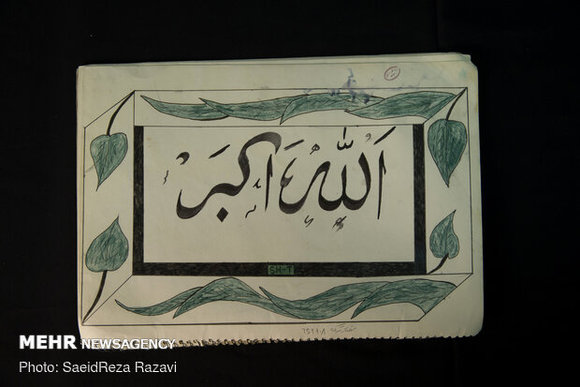 الله اکبر
SH-T
MEHR NEWSAGENCY
Photo: SaeidReza Razavi